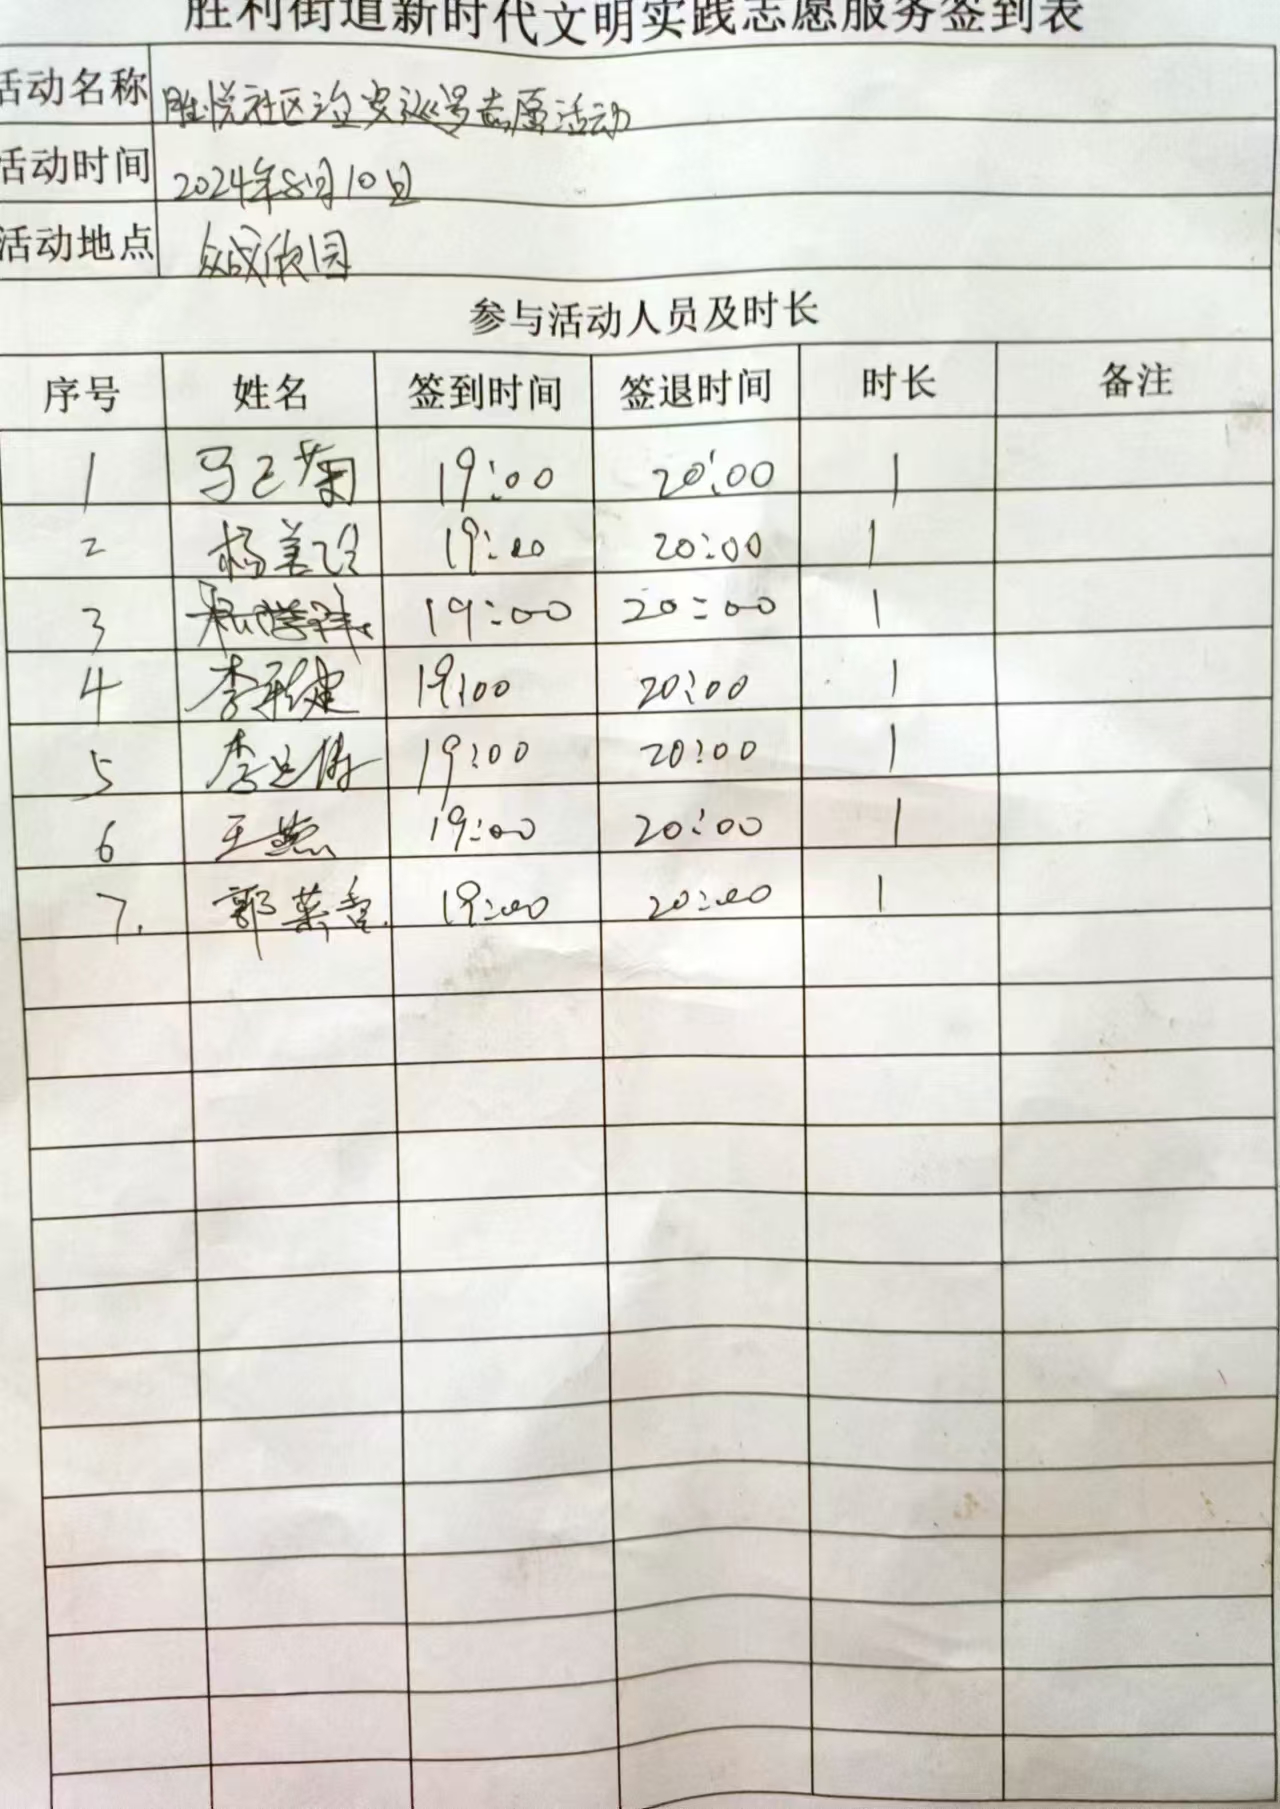 胜利街道新时代文明实践志愿服务签到表
活动名称 胜悦社区治安巡逻志愿活动
活动时间 2024年8月10日
活动地点 众成欣园
参与活动人员及时长
序号 姓名 签到时间 签退时间 时长 备注
1 马己菊 19:00 20:00 1
2 杨美玲 19:00 20:00 1
3 19:00 20:00 1
4 李彩建 19:00 20:00 1
5 李 19:00 20:00 1
6 王燕 19:00 20:00 1
7. 郭菜香 19:00 20:00 1